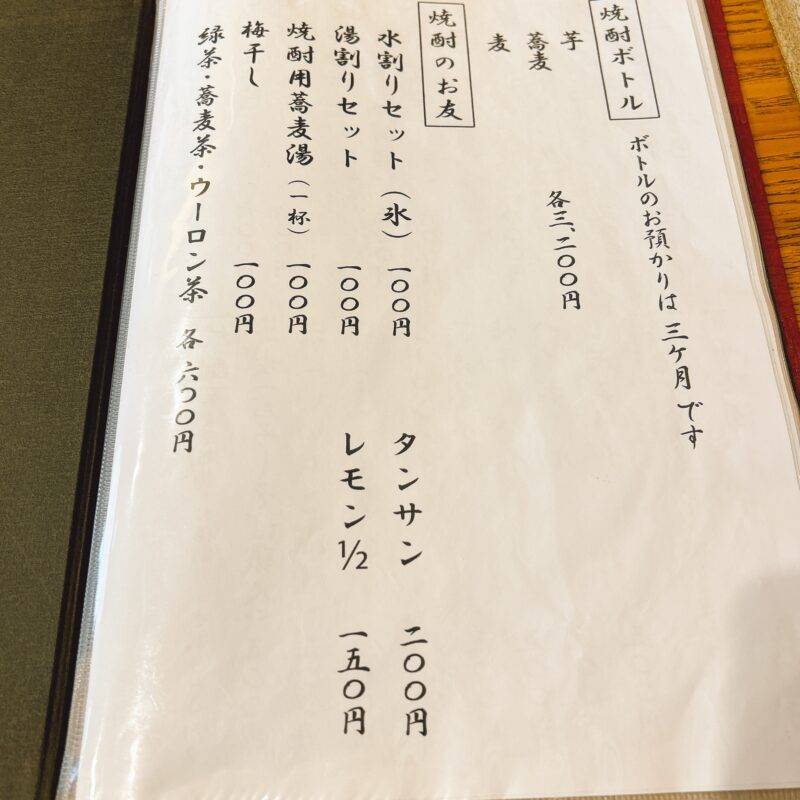 焼酎ボトル
ボトルのお預かりは 三ケ月 です
芋
蕎麦
麦
各三、二〇〇円
焼酎のお友
水割りセット(氷) 一〇〇円
湯割りセット 一〇〇円
焼酎用蕎麦湯(一杯) 一〇〇円
梅干し 一〇〇円
緑茶・蕎麦茶・ウーロン茶 各 六〇〇円
タンサン 二〇〇円
レモン½ 一五〇円